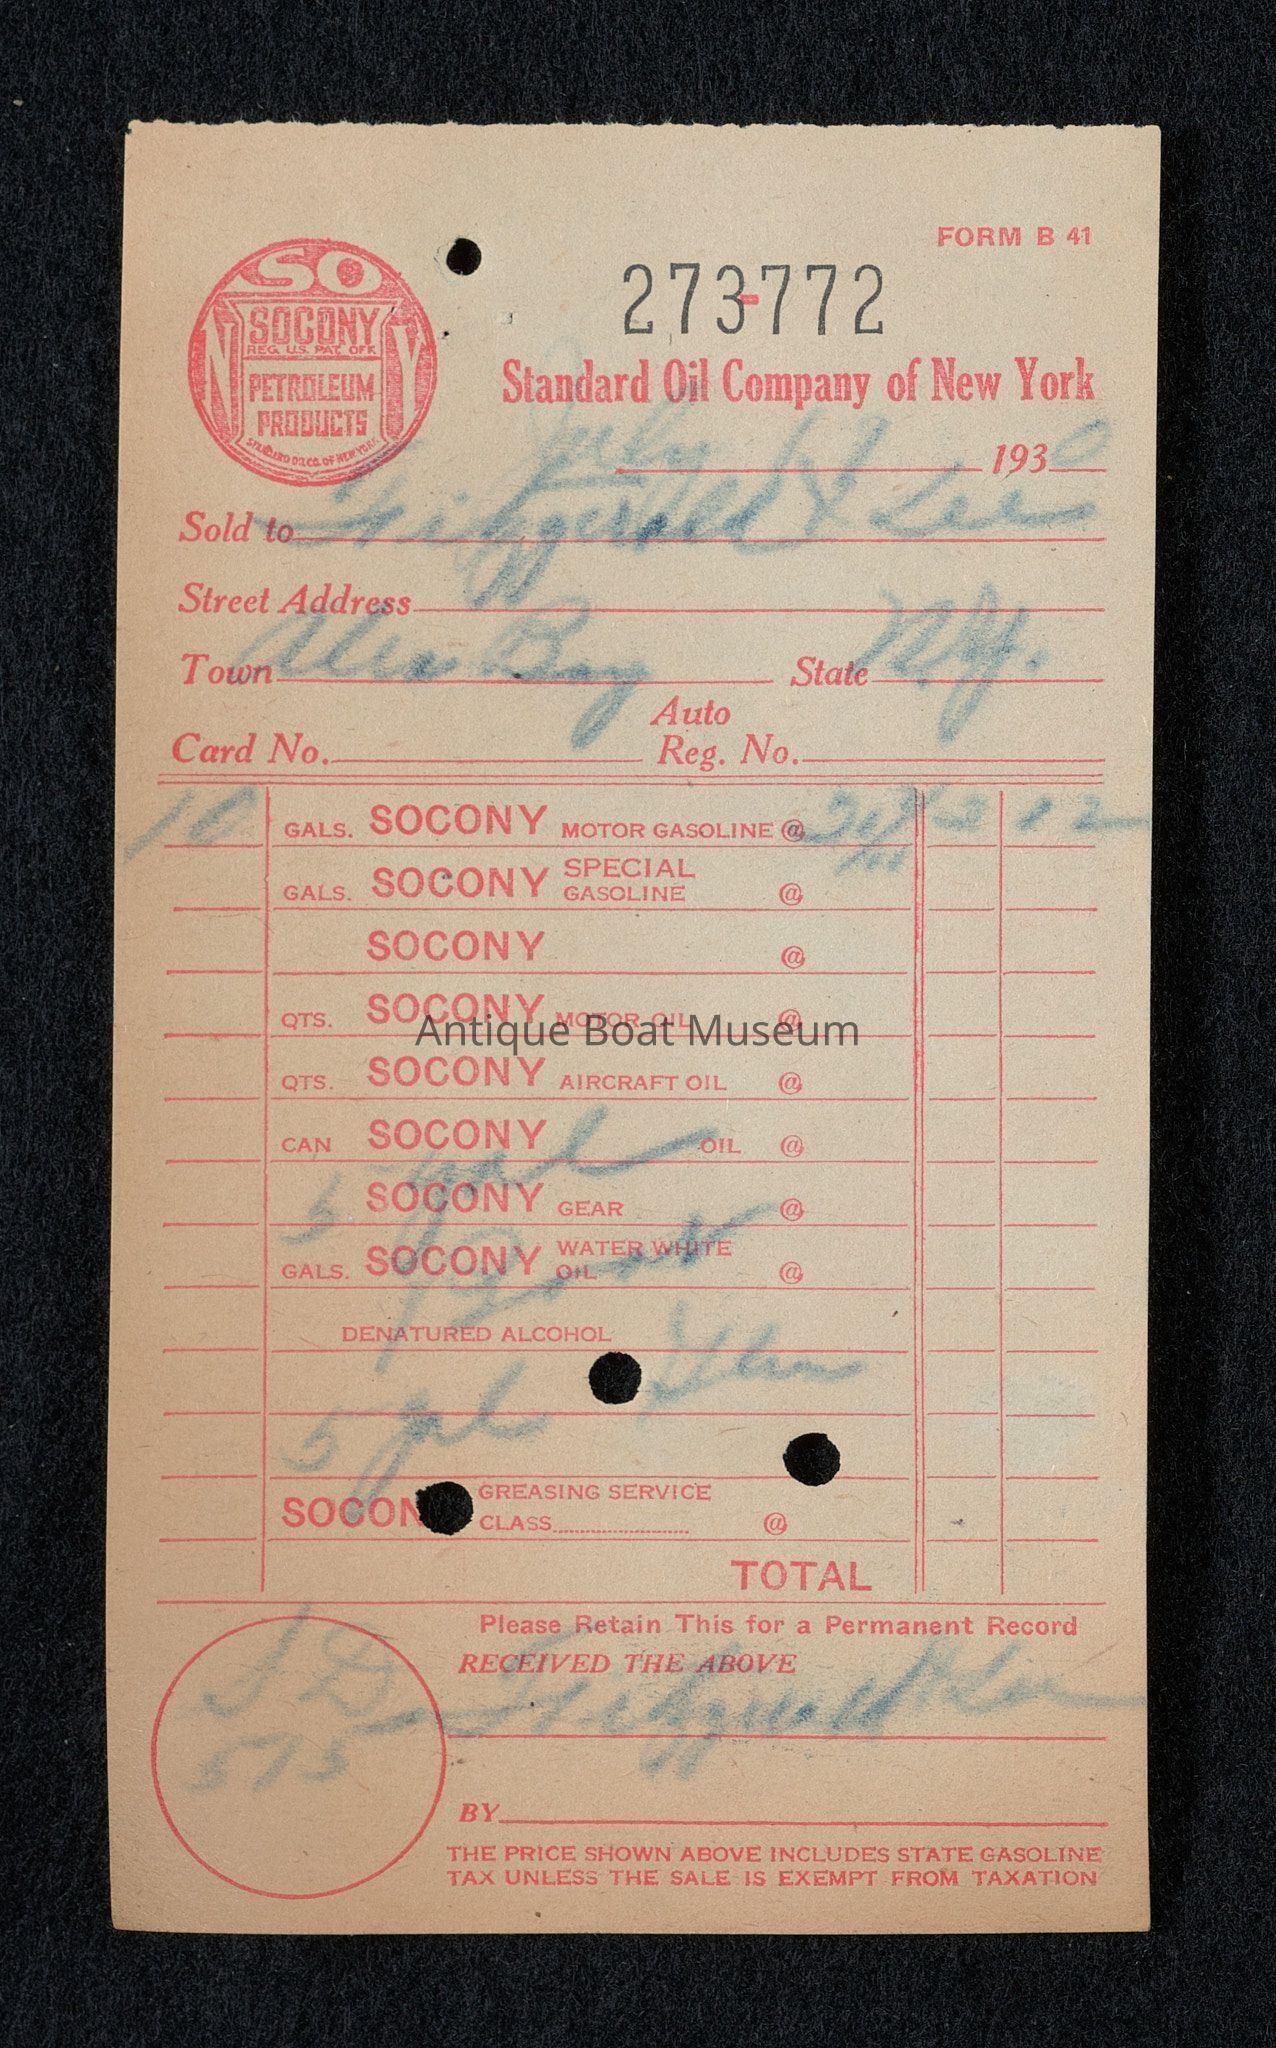 FORM B 41
SO
NY
SOCONY
REG. U.S. PAT. OFF.
PETROLEUM
PRODUCTS
STANDARD OIL CO. OF NEW YORK
273-772
Standard Oil Company of New York
July 193 0
Sold to Fitzgerald & Lee
Street Address
Town Alex Bay State N.Y.
Auto
Card No. Reg. No.
10 GALS. SOCONY MOTOR GASOLINE @ 2 12
GALS. SOCONY SPECIAL GASOLINE @
SOCONY @
QTS. SOCONY MOTOR OIL @
Antique Boat Museum
QTS. SOCONY AIRCRAFT OIL @
CAN SOCONY OIL @
5 gal
SOCONY GEAR @
GALS. SOCONY WATER WHITE OIL @
DENATURED ALCOHOL
5 gal
SOCON GREASING SERVICE
CLASS @
TOTAL
Please Retain This for a Permanent Record
RECEIVED THE ABOVE
Fitzgerald & Lee
515
BY
THE PRICE SHOWN ABOVE INCLUDES STATE GASOLINE
TAX UNLESS THE SALE IS EXEMPT FROM TAXATION